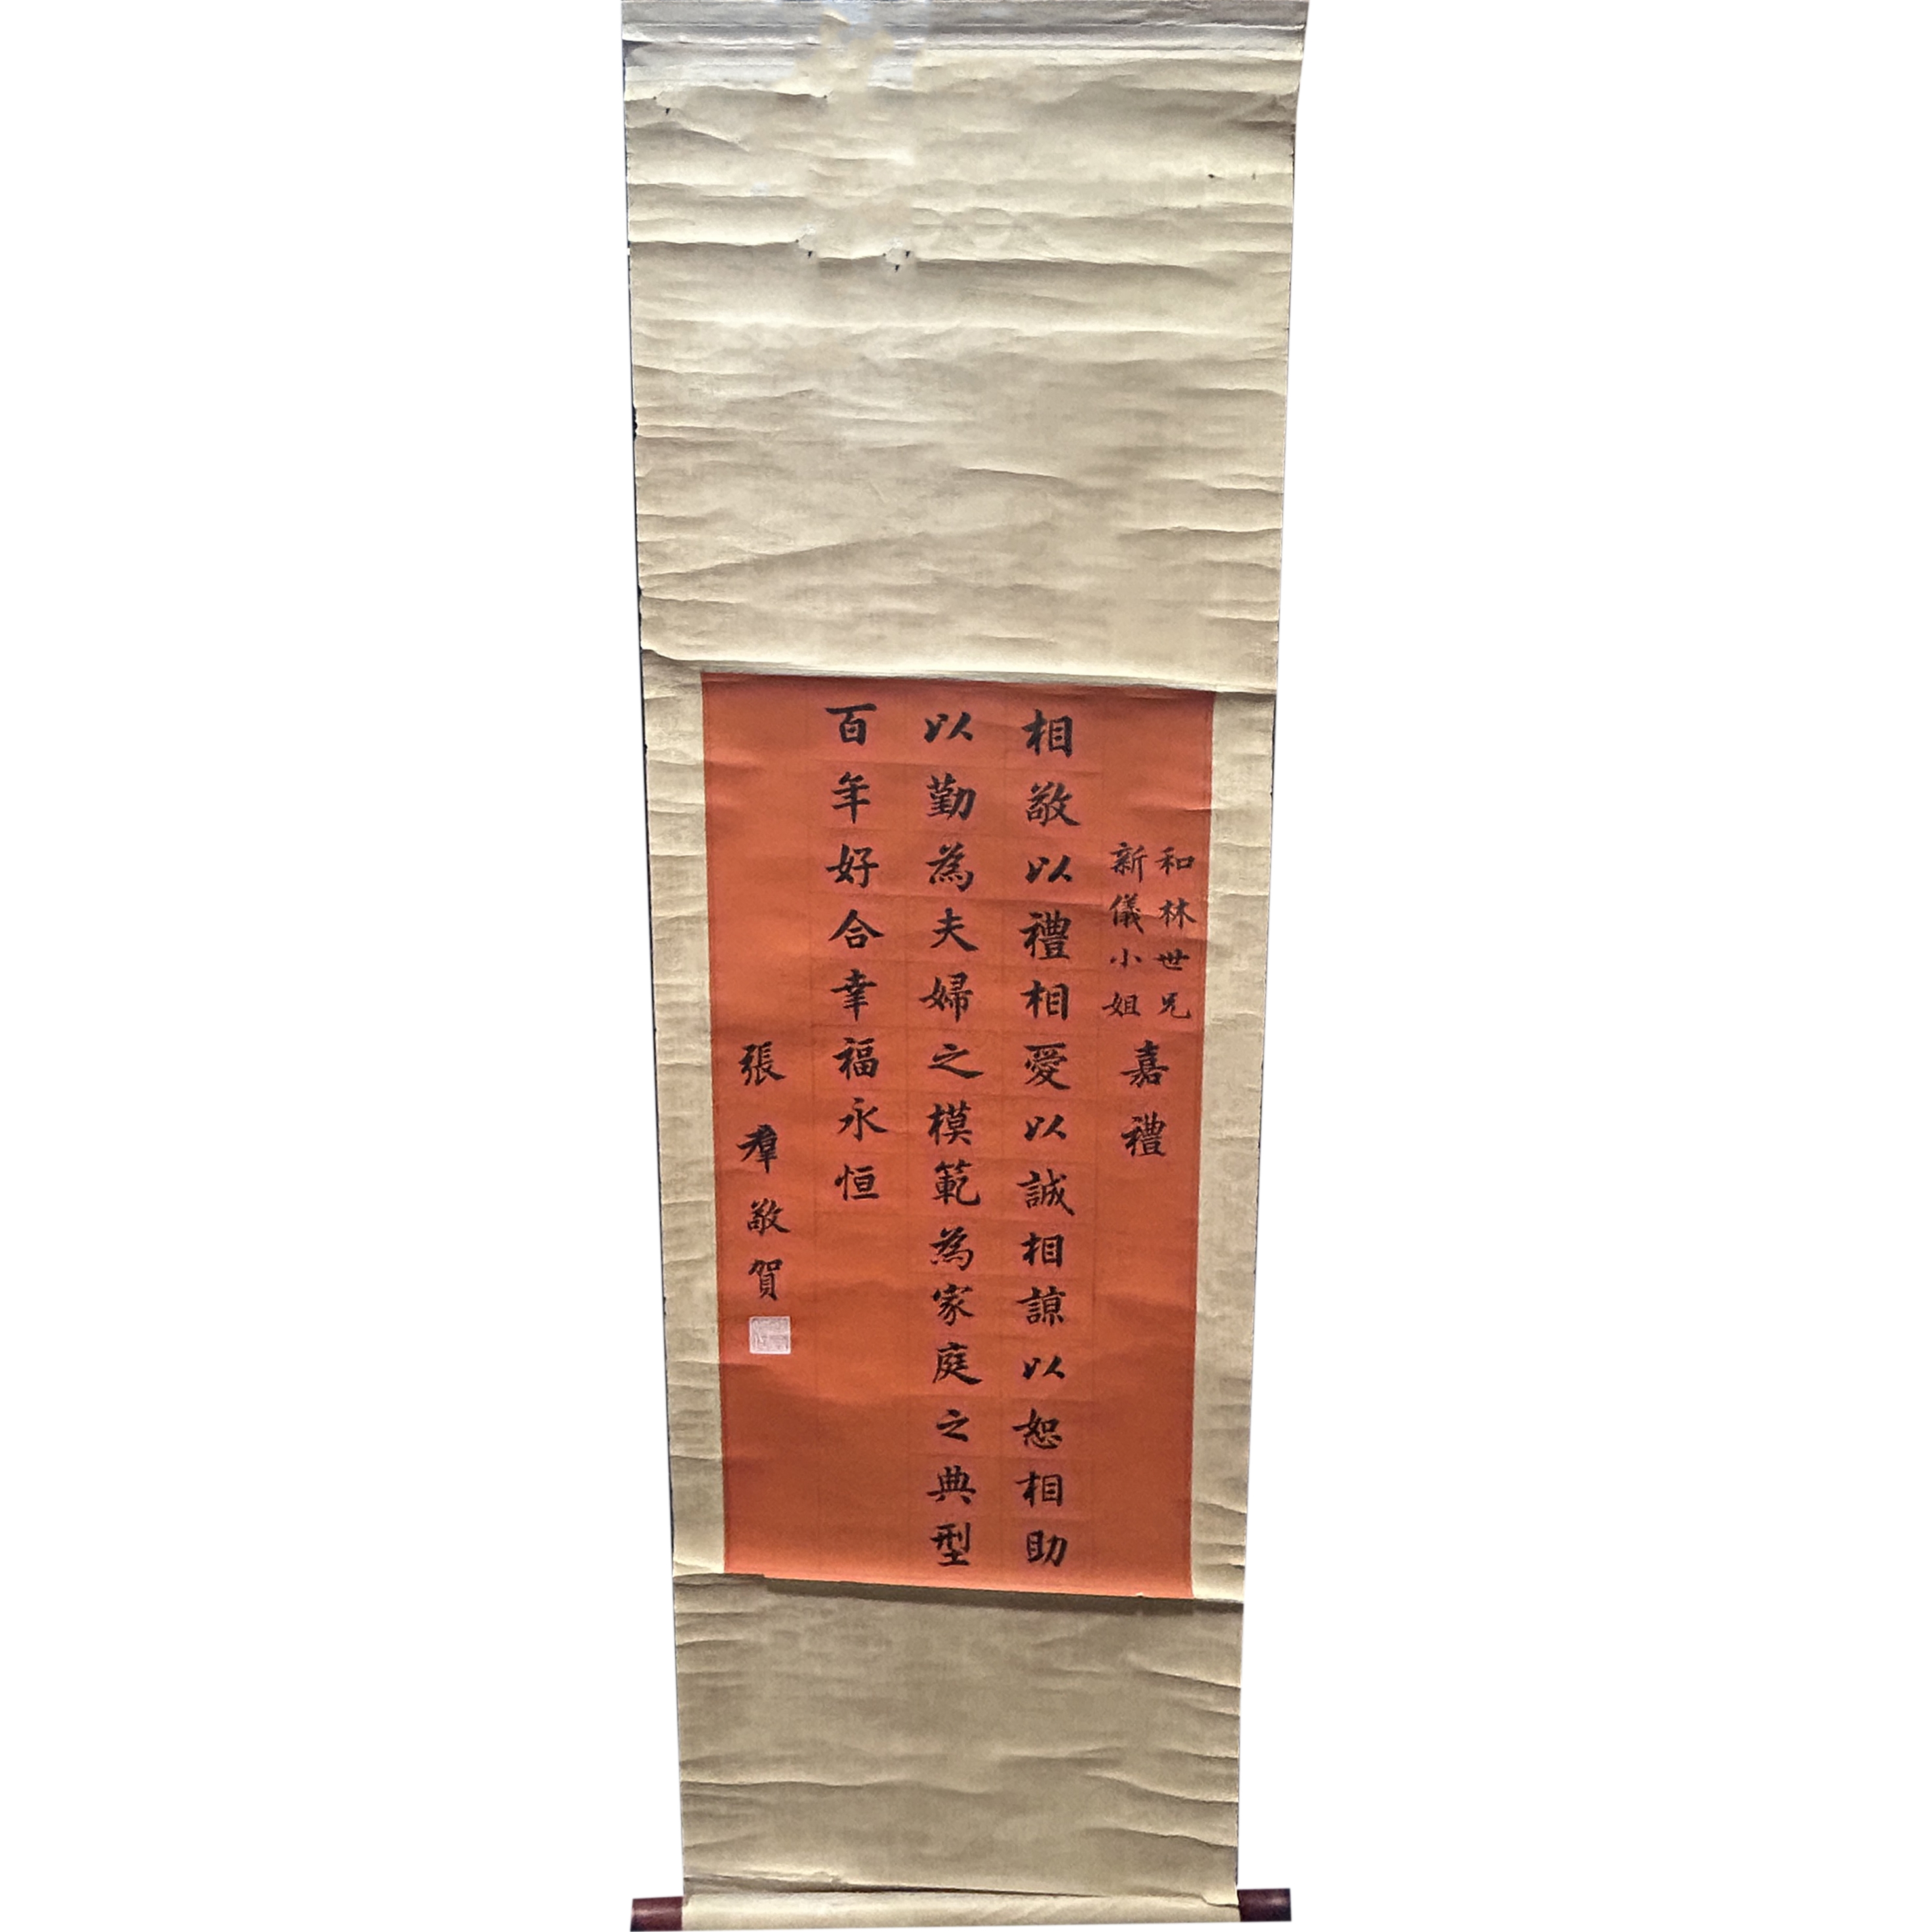 和林世兄
新儀小姐
嘉禮
相敬以禮相愛以誠相諒以恕相助
以勤為夫婦之模範為家庭之典型
百年好合幸福永恒
張羣敬賀